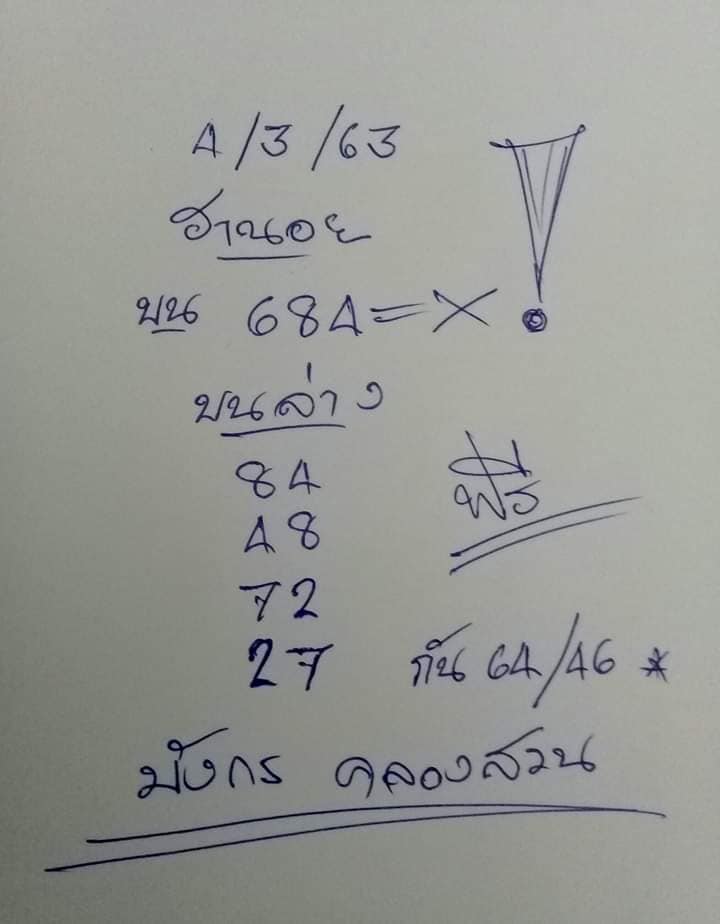 4/3/63
ฮานอย
บน 684=X
บนล่าง
84
48
72
27
ฟรี
กัน 64/46 *
มังกร คลองสวน